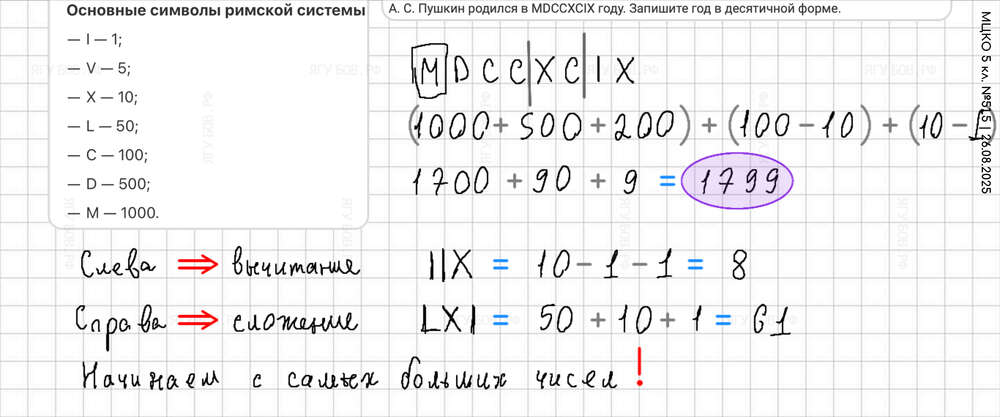 Основные символы римской системы
— I — 1;
— V — 5;
— X — 10;
— L — 50;
— C — 100;
— D — 500;
— M — 1000.
А. С. Пушкин родился в MDCCXCIX году. Запишите год в десятичной форме.
M D C C | X C | I X
(1000 + 500 + 200) + (100 − 10) + (10 − 1)
1700 + 90 + 9 = 1799
Слева ⇒ вычитание
IIX = 10 − 1 − 1 = 8
Справа ⇒ сложение
LXI = 50 + 10 + 1 = 61
Начинаем с самых больших чисел !
МЦКО 5 кл. №515 | 26.08.2025